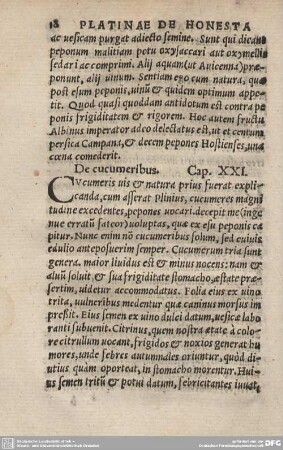 18 PLATINAE DE HONESTA
ac uesicam purgat adiecto semine. Sunt qui dicant
peponum malitiam potu oxysaccari aut oxymellis
sedari ac comprimi. Alij aquam (ut Auicenna) præ-
ponunt, alij uinum. Sentiam ego cum natura, quæ
post esum peponis, uinū & quidem optimum appe-
tit. Quod quasi quoddam antidotum est contra pe
ponis frigiditatem & rigorem. Hoc autem fructu
Albinus imperator adeo delectatus est, ut et centum
persica Campana, & decem pepones Hostienses, una
cœna comederit.
De cucumeribus. Cap. XXI.
CVcumeris uis & natura prius fuerat expli
canda, cum asserat Plinius, cucumeres magni
tudine excedentes, pepones uocari. decepit me (inge
nue erratū fateor) uoluptas, quæ ex esu peponis ca
pitur. Nunc enim nō cucumeribus solum, sed cuiuis
edulio anteposuerim semper. Cucumerum tria sunt
genera. maior liuidus est & minus nocens: nam &
aluū soluit, & sua frigiditate stomacho, æstate præ-
sertim, uidetur accommodatus. Folia eius ex uino
trita, uulneribus medentur quæ caninus morsus im
preßit. Eius semen ex uino dulci datum, uesicæ labo
ranti subuenit. Citrinus, quem nostra ætate à colo-
re citrullum uocant, frigidos & noxios generat hu
mores, unde febres autumnales oriuntur, quòd di-
utius quàm oporteat, in stomacho morentur. Hui-
us semen tritū & potui datum, febricitantes iuuat,
DFG